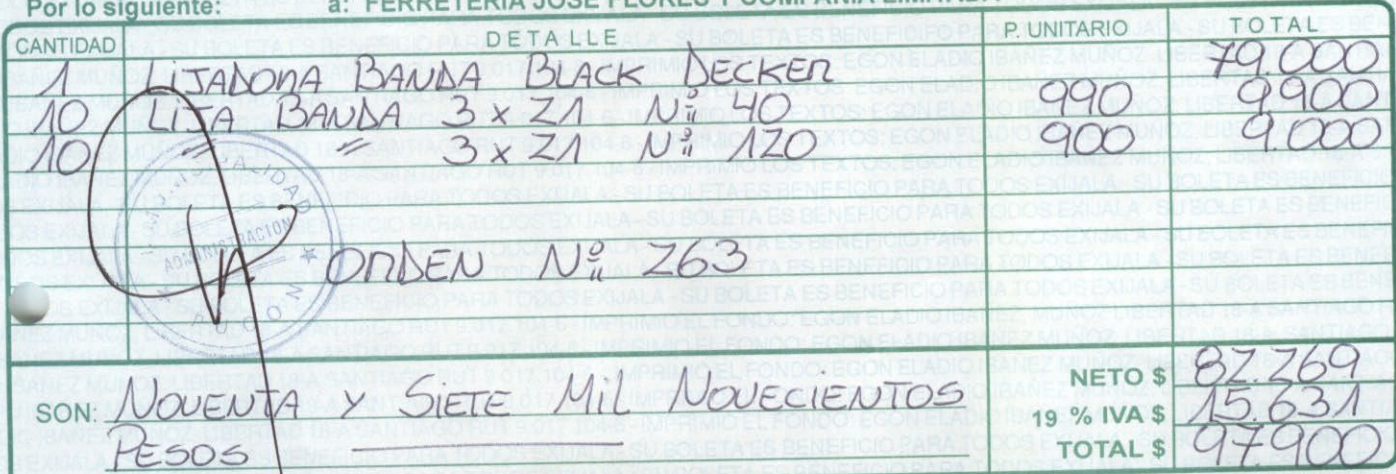 Por lo siguiente: a: FERRETERIA JOSE FLORES Y COMPAÑIA LIMITADA
CANTIDAD DETALLE P. UNITARIO TOTAL
1 LIJADORA BANDA BLACK DECKER 79.000
10 LIJA BANDA 3 x 21 Nº 40 990 9.900
10 " " 3 x 21 Nº 120 900 9.000
ADMINISTRACION
ORDEN Nº 263
NETO $ 82.269
SON: NOVENTA Y SIETE MIL NOVECIENTOS 19 % IVA $ 15.631
PESOS TOTAL $ 97.900